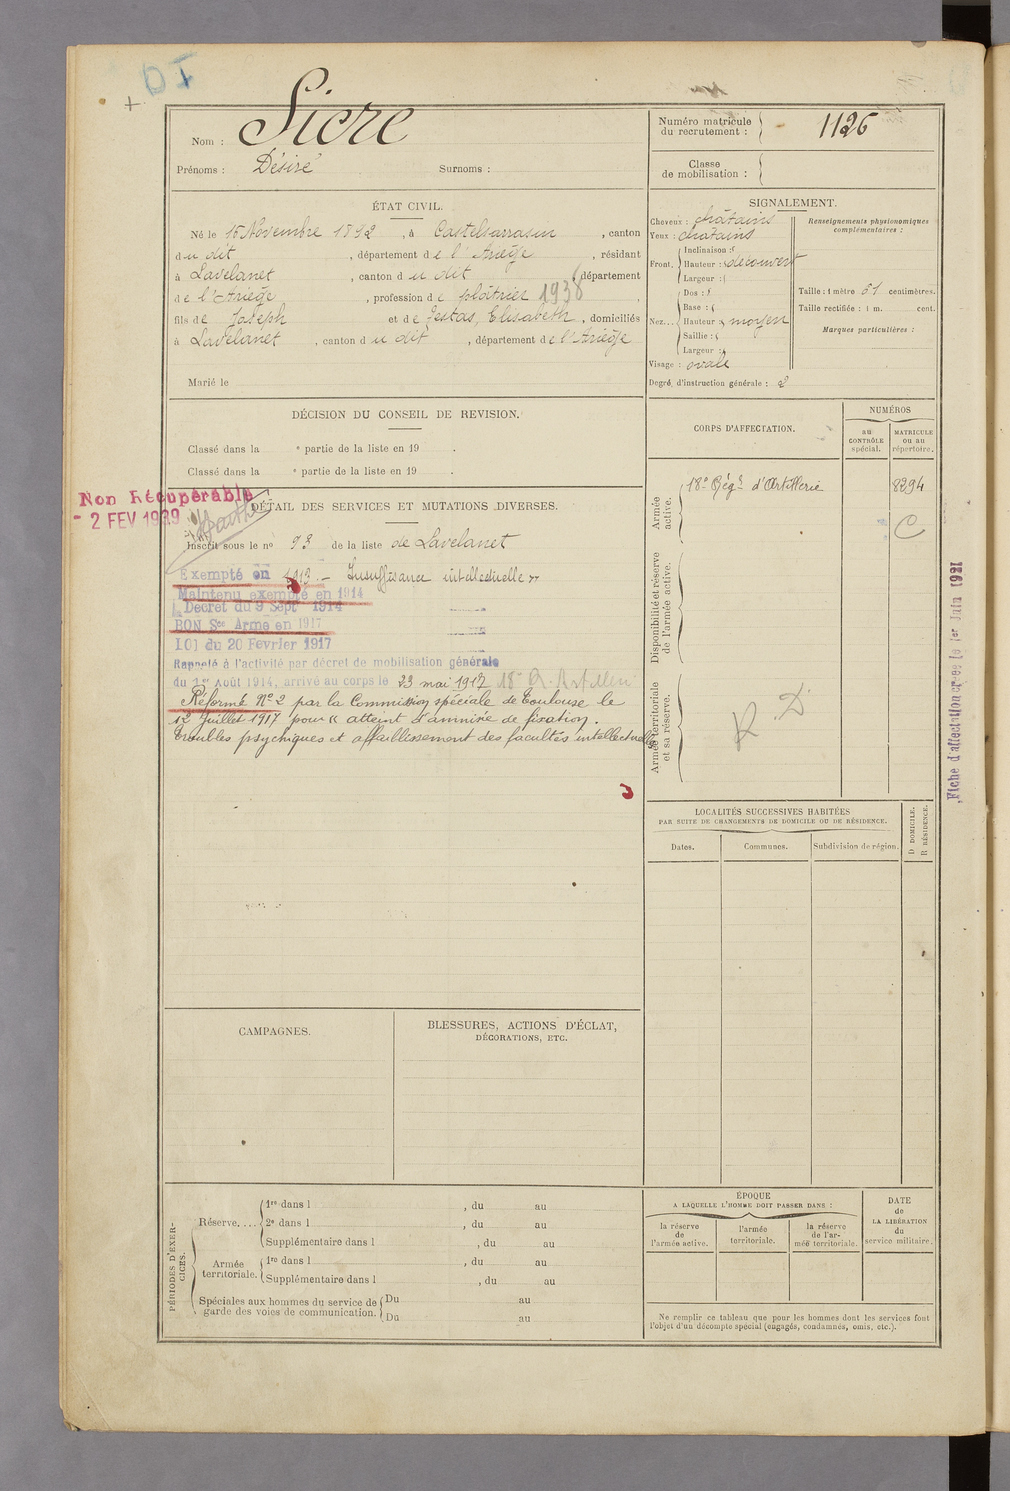 DI
+
Nom : Sicre
Prénoms : Désiré Surnoms :
Numéro matricule du recrutement : 1126
Classe de mobilisation :
ÉTAT CIVIL.
Né le 15 Novembre 1892, à Castelsarrasin, canton
du dit, département de l'Ariège, résidant
à Lavelanet, canton du dit, département
de l'Ariège, profession de plâtrier 1938,
fils de Joseph et de Jestas, Elisabeth, domiciliés
à Lavelanet, canton du dit, département de l'Ariège
Marié le
SIGNALEMENT.
Cheveux : châtains
Yeux : châtains
Front. Inclinaison :
Hauteur : découvert
Largeur :
Nez... Dos :
Base :
Hauteur : moyen
Saillie :
Largeur :
Visage : ovale
Degré d'instruction générale : 2
Renseignements physionomiques complémentaires :
Taille : 1 mètre 61 centimètres.
Taille rectifiée : 1 m. cent.
Marques particulières :
DÉCISION DU CONSEIL DE REVISION.
Classé dans la e partie de la liste en 19 .
Classé dans la e partie de la liste en 19 .
Non Récupérable
- 2 FEV 1939
DÉTAIL DES SERVICES ET MUTATIONS DIVERSES.
Inscrit sous le no 93 de la liste de Lavelanet
Exempté en 1913.- Insuffisance intellectuelle
Maintenu exempté en 1914
Decret du 9 Sept 1914
BON Sce Arme en 1917
LOI du 20 Fevrier 1917
Rappelé à l'activité par décret de mobilisation générale
du 1er Août 1914, arrivé au corps le 23 mai 1917 18e R. Artillerie
Réformé No 2 par la Commission spéciale de Toulouse le
12 Juillet 1917 pour « atteint d'amnésie de fixation.
Troubles psychiques et affaiblissement des facultés intellectuelles
CORPS D'AFFECTATION.
NUMÉROS
au CONTRÔLE spécial.
MATRICULE ou au répertoire.
Armée active.
18e Régt d'Artillerie 8294
C
Disponibilité et réserve de l'armée active.
Armée territoriale et sa réserve.
R. D
Fiche d'affectation créée le 1er Juin 1921
LOCALITÉS SUCCESSIVES HABITÉES
PAR SUITE DE CHANGEMENTS DE DOMICILE OU DE RÉSIDENCE.
Dates. Communes. Subdivision de région.
D DOMICILE.
R RÉSIDENCE.
CAMPAGNES.
BLESSURES, ACTIONS D'ÉCLAT,
DÉCORATIONS, ETC.
PÉRIODES D'EXERCICES.
Réserve.... 1re dans l , du au
2e dans l , du au
Supplémentaire dans l , du au
Armée territoriale. 1re dans l , du au
Supplémentaire dans l , du au
Spéciales aux hommes du service de garde des voies de communication. Du au
Du au
ÉPOQUE
A LAQUELLE L'HOMME DOIT PASSER DANS :
la réserve de l'armée active.
l'armée territoriale.
la réserve de l'armée territoriale.
DATE de LA LIBÉRATION du service militaire.
Ne remplir ce tableau que pour les hommes dont les services font
l'objet d'un décompte spécial (engagés, condamnés, omis, etc.).